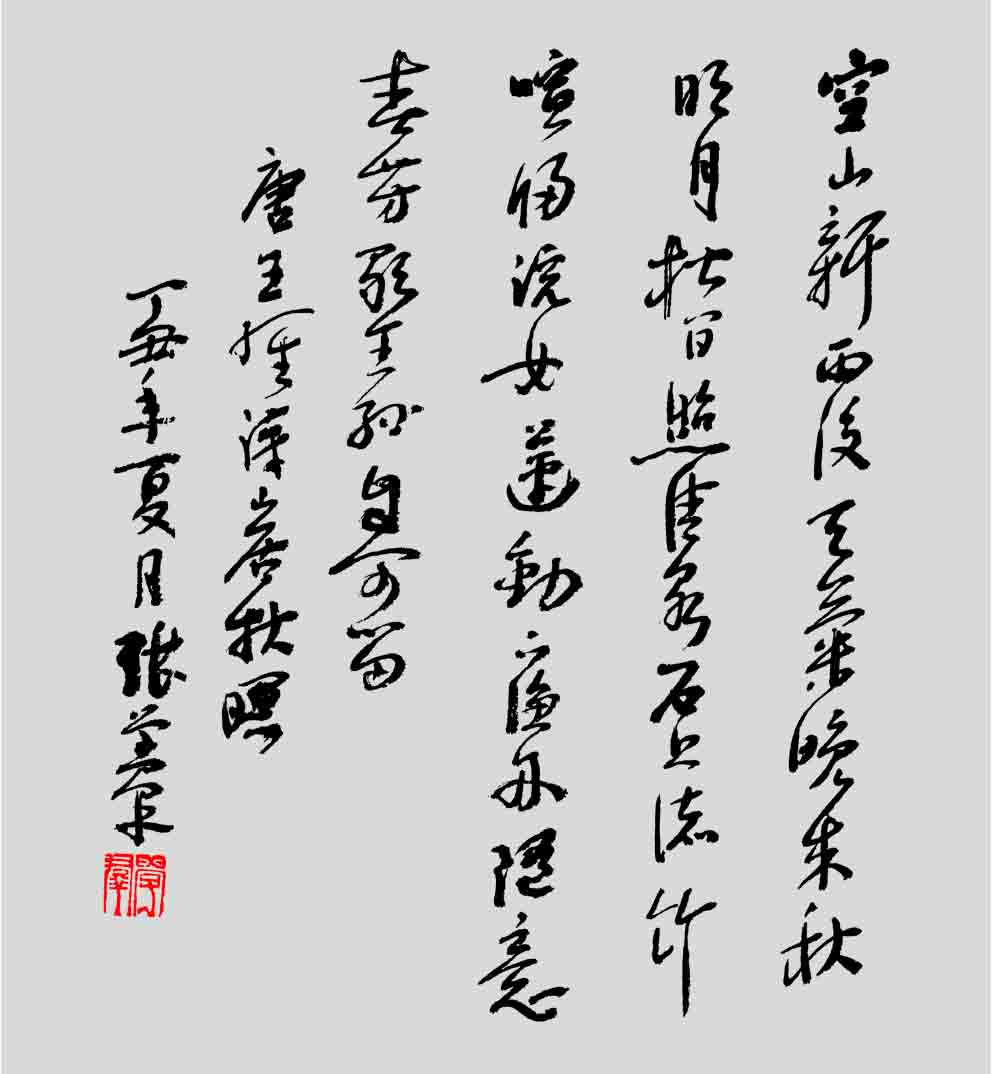 空山新雨後天氣晚來秋
明月松間照清泉石上流竹
喧歸浣女蓮動下漁舟隨意
春芳歇王孫自可留
唐王維詩山居秋暝
丁丑年夏月張學群
學群